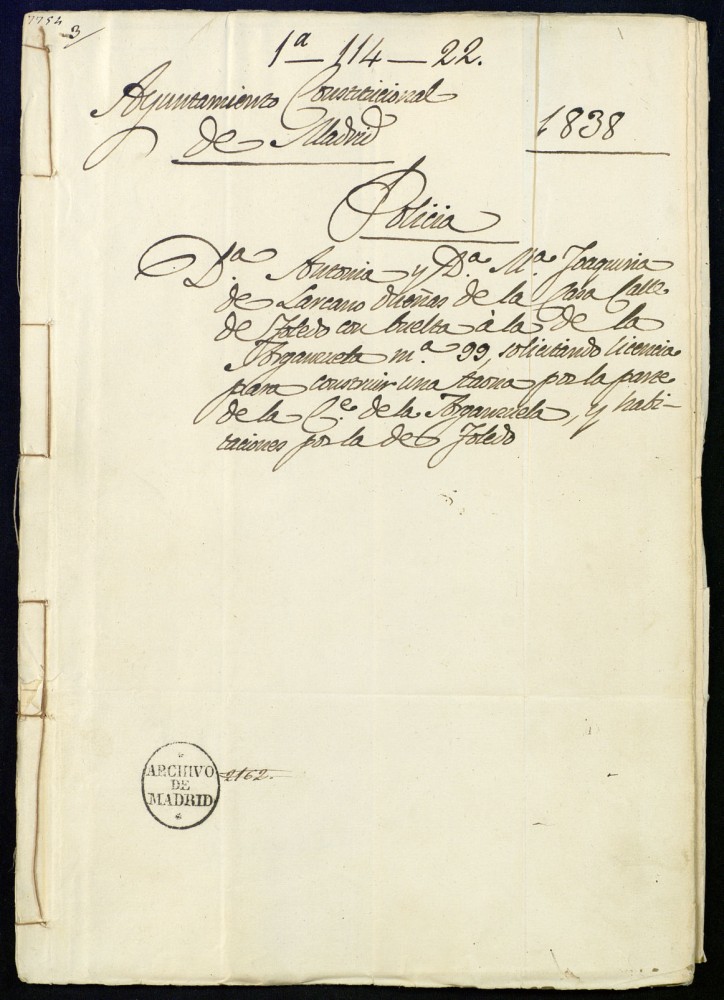 7754
3
1ª-114-22.
Ayuntamiento Constitucional
de Madrid
1838
Policia
D.ª Antonia y D.ª M.ª Joaquina
de Larcano dueñas de la Casa Calle
de Toledo con buelta à la de la
Arganzuela n.º 99, solicitando licencia
para construir una taona por la parte
de la C.e de la Arganzuela, y habi-
taciones por la de Toledo
ARCHIVO
DE
MADRID
2162.